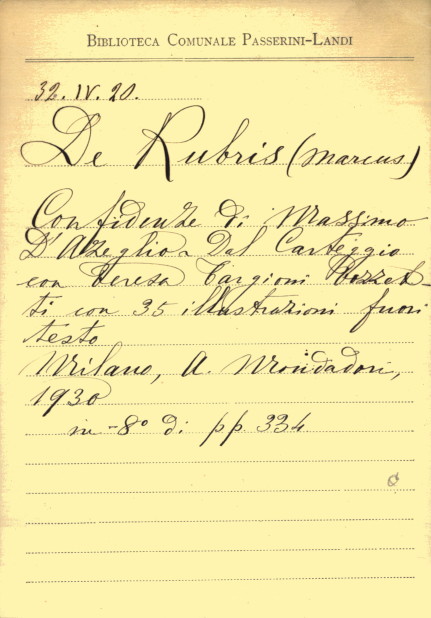 BIBLIOTECA COMUNALE PASSERINI-LANDI
32.IV.20.
De Rubris (Marcus)
Confidenze di Massimo
D'Azeglio - Dal Carteggio
con Teresa Targioni Tozzet-
ti con 35 illustrazioni fuori
testo
Milano, A. Mondadori,
1930
in-8° di pp. 334